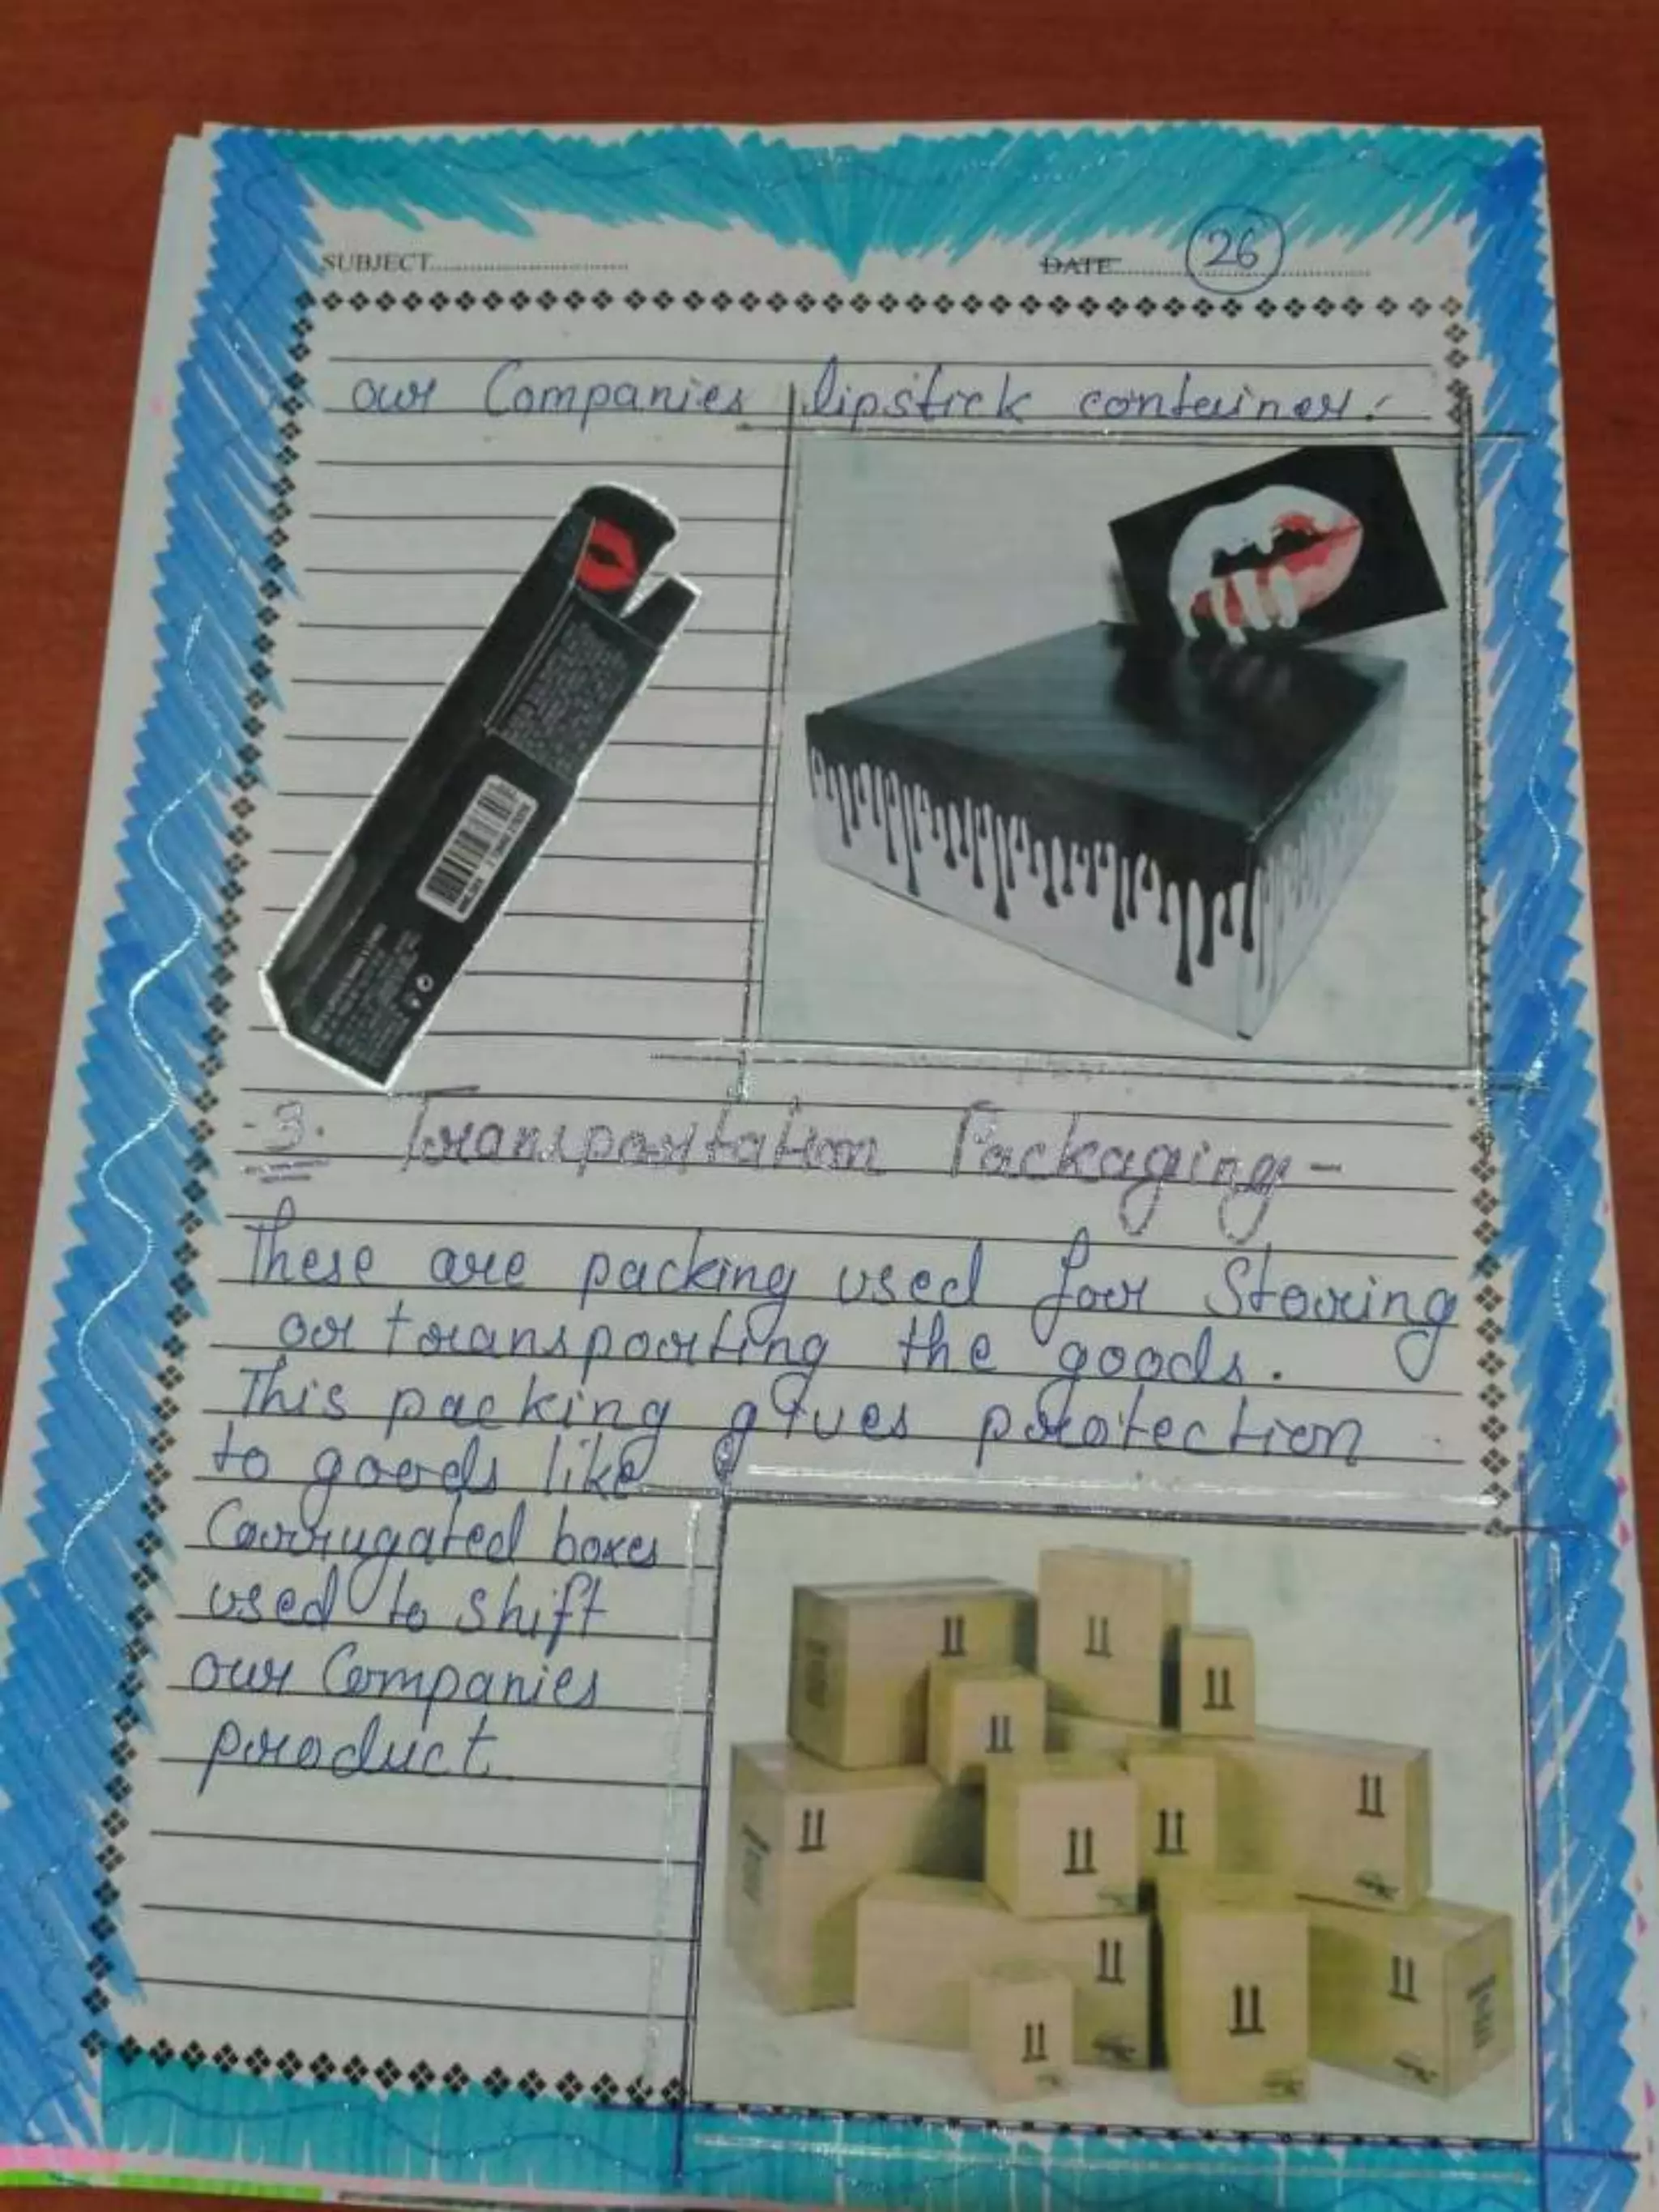 SUBJECT
DATE
26
our Companies lipstick container.
3. Transportation Packaging-
These are packing used for Storing
or transporting the goods.
This packing gives protection
to goods like
Corrugated boxes
used to shift
our Companies
product.